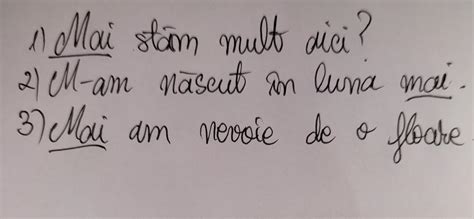 1) Mai stăm mult aici?
2) M-am născut în luna mai.
3) Mai am nevoie de o floare